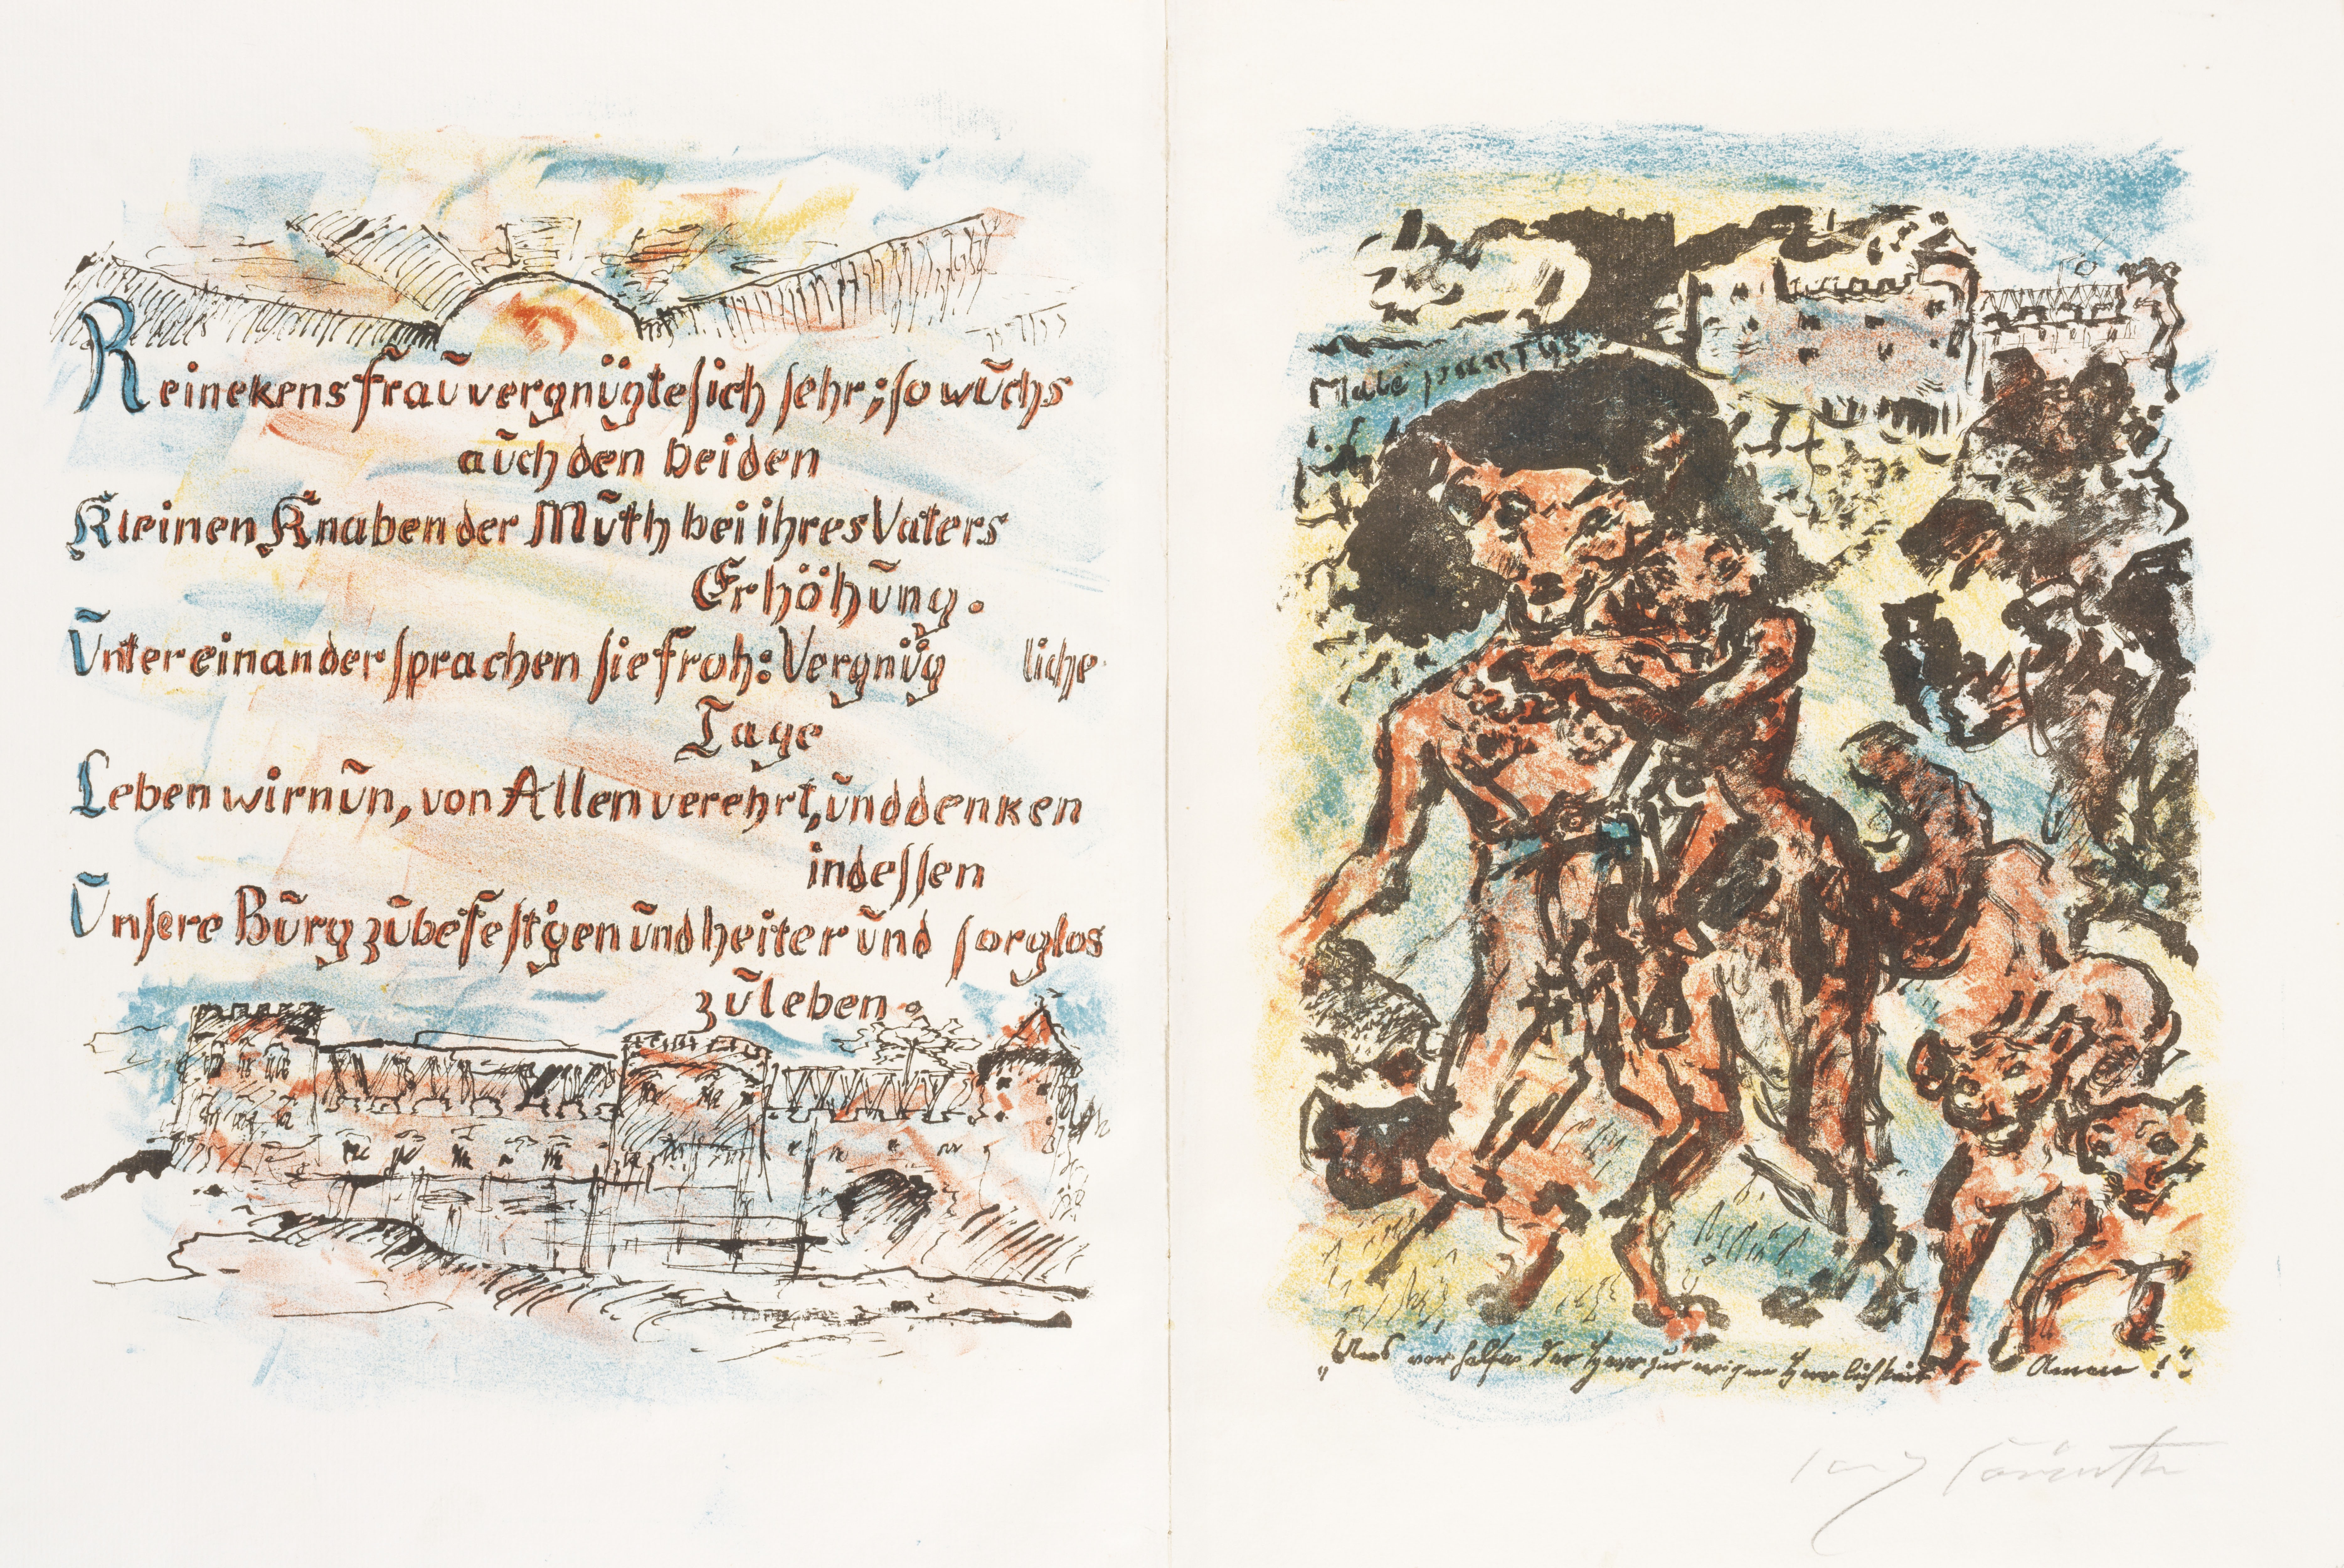 Reinekens frau vergnügte sich sehr; so wuchs
auch den beiden
Kleinen Knaben der Muth bei ihres Vaters
Erhöhung.
Untereinander sprachen sie froh: Vergnüg liche
Tage
Leben wir nun, von Allen verehrt, und denken
indessen
Unsere Burg zu befest'gen und heiter und sorglos
zu leben.
Malepartus
„Uns ver helfe der Herr zur ewigen Herrlichkeit! Amen!"
Lovis Corinth